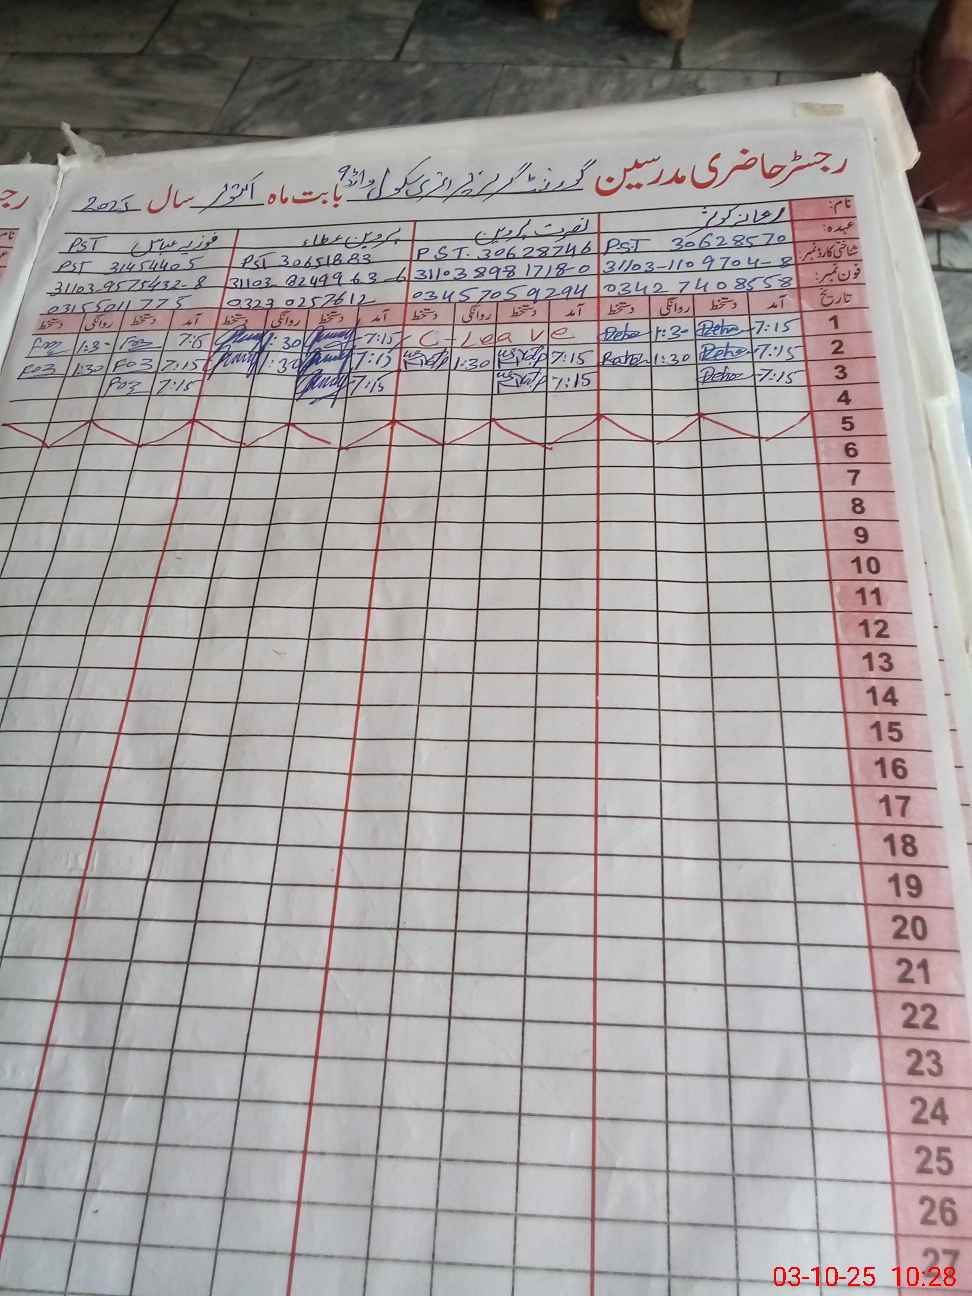 رجسٹر حاضری مدرسین گورنمنٹ گرلز پرائمری سکول وارڈ 9 بابت ماہ اکتوبر سال 2025
نام:
عہدہ: PST 30628570 نصرت پروین P.S.T. 30628746 پروین عطاء PST 30651883 فوزیہ عباس PST 31454405
شناختی کارڈ نمبر: 31103-1109704-8 31103 8981718-0 31103-8249963-6 31103-9575432-8
فون نمبر: 0342 7408558 03457059294 0323 0257612 03155011775
تاریخ آمد دستخط روانگی دستخط آمد دستخط روانگی دستخط آمد دستخط روانگی دستخط آمد دستخط روانگی دستخط
1 7:15 1:30 C-Leave 7:15 1:30 7:15 1:30
2 7:15 1:30 7:15 1:30 7:15 1:30 7:15 1:30
3 7:15 7:15 7:15 7:15
4
5
6
7
8
9
10
11
12
13
14
15
16
17
18
19
20
21
22
23
24
25
26
27
03-10-25 10:28